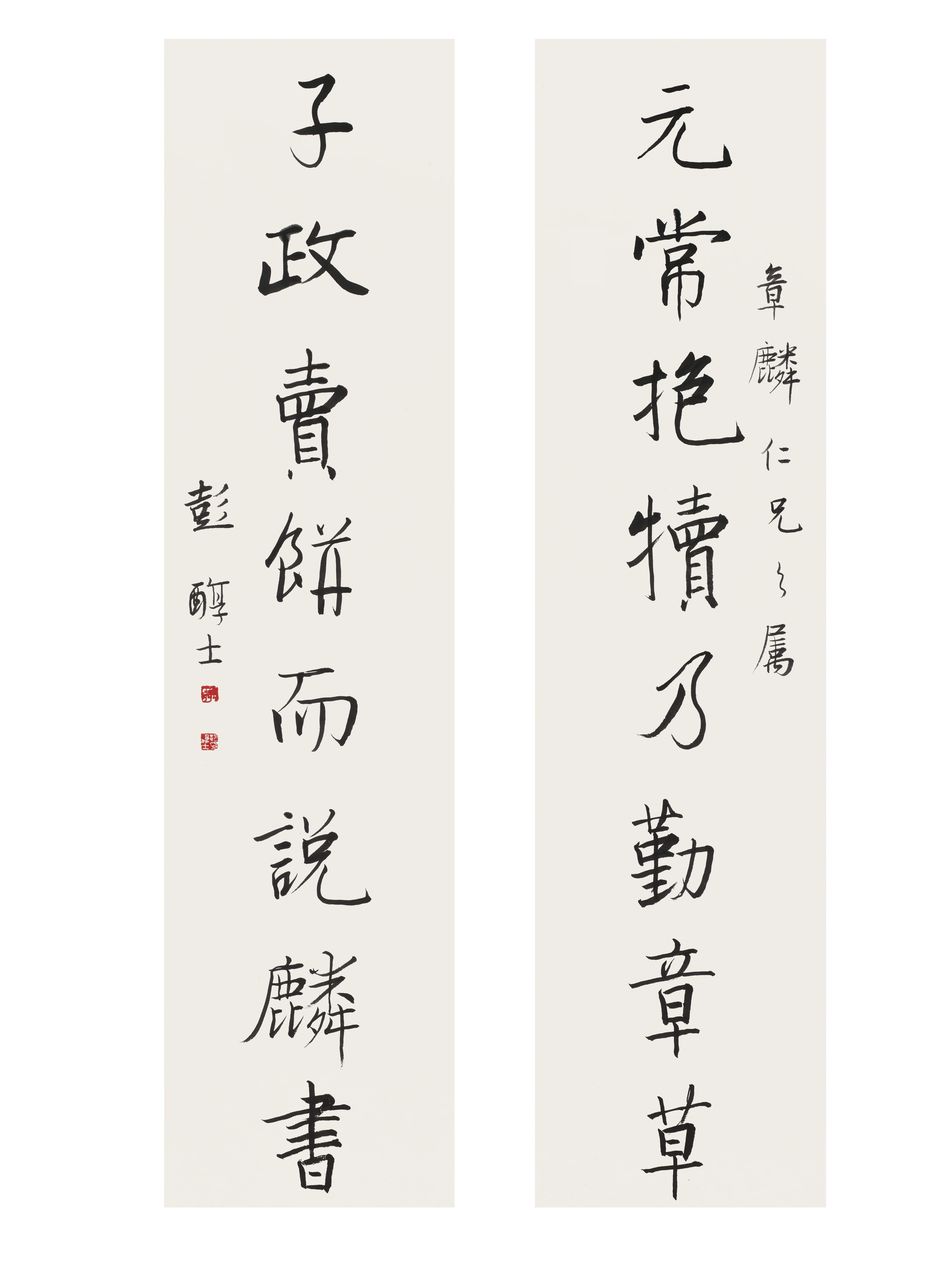 章麟仁兄之属
元常抱犢乃勤章草
子政賣餅而説麟書
彭醇士